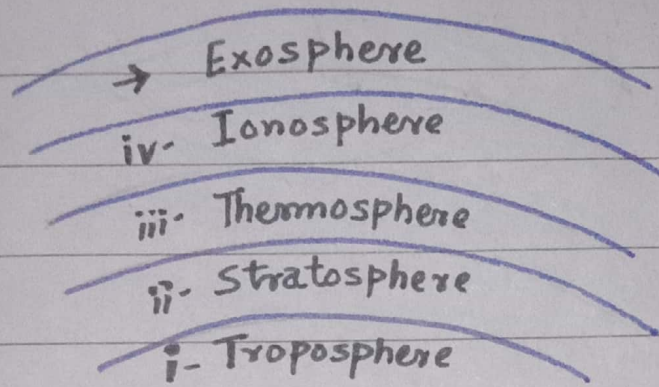 → Exosphere
iv- Ionosphere
iii- Thermosphere
ii- Stratosphere
i- Troposphere